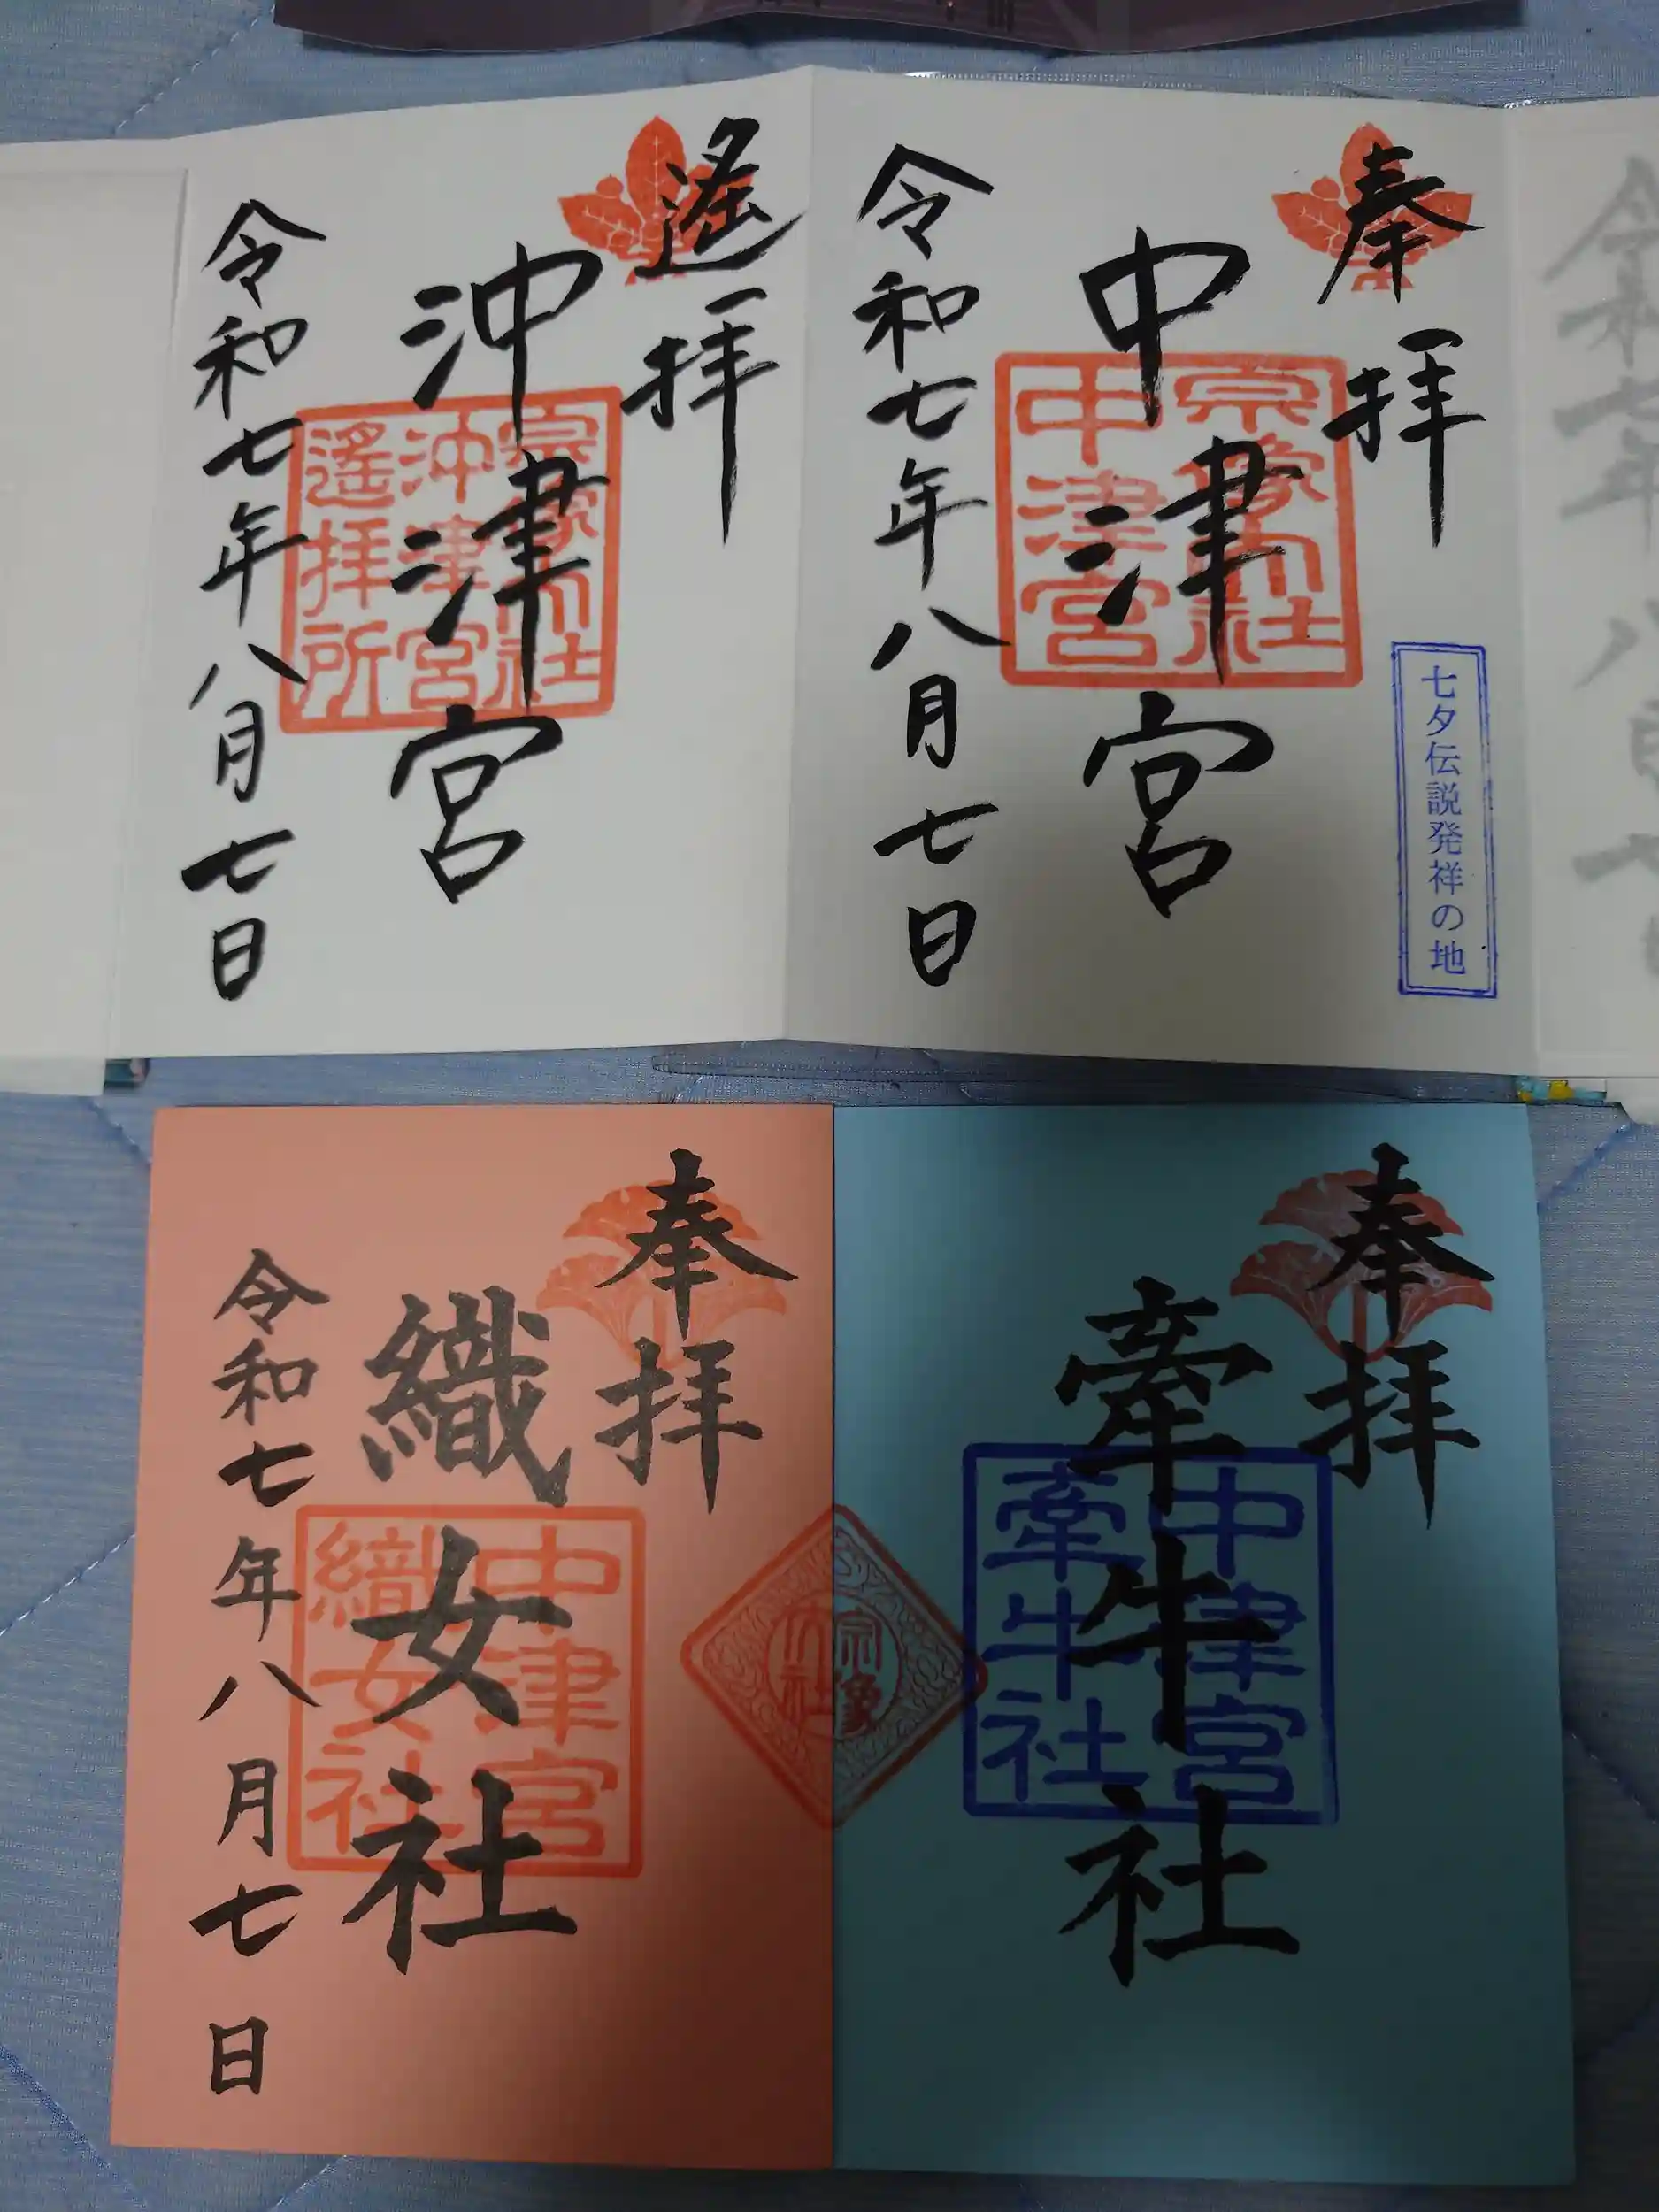 奉拝
中津宮
令和七年八月七日
宗像大社
中津宮
七夕伝説発祥の地
遙拝
沖津宮
令和七年八月七日
宗像大社
沖津宮
遙拝所
奉拝
牽牛社
中津宮
牽牛社
宗像
大社
奉拝
織女社
令和七年八月七日
中津宮
織女社